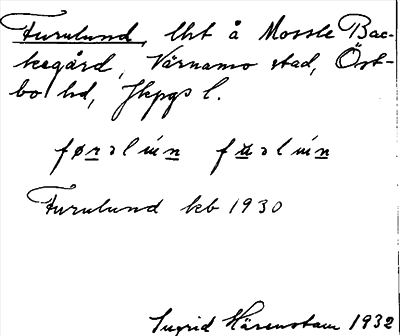 Furulund, lht å Mossle Bac-
kegård, Värnamo stad, Öst-
bo hd, Jkpgs l.
Furulund kb 1930
Ingrid Härenstam 1932